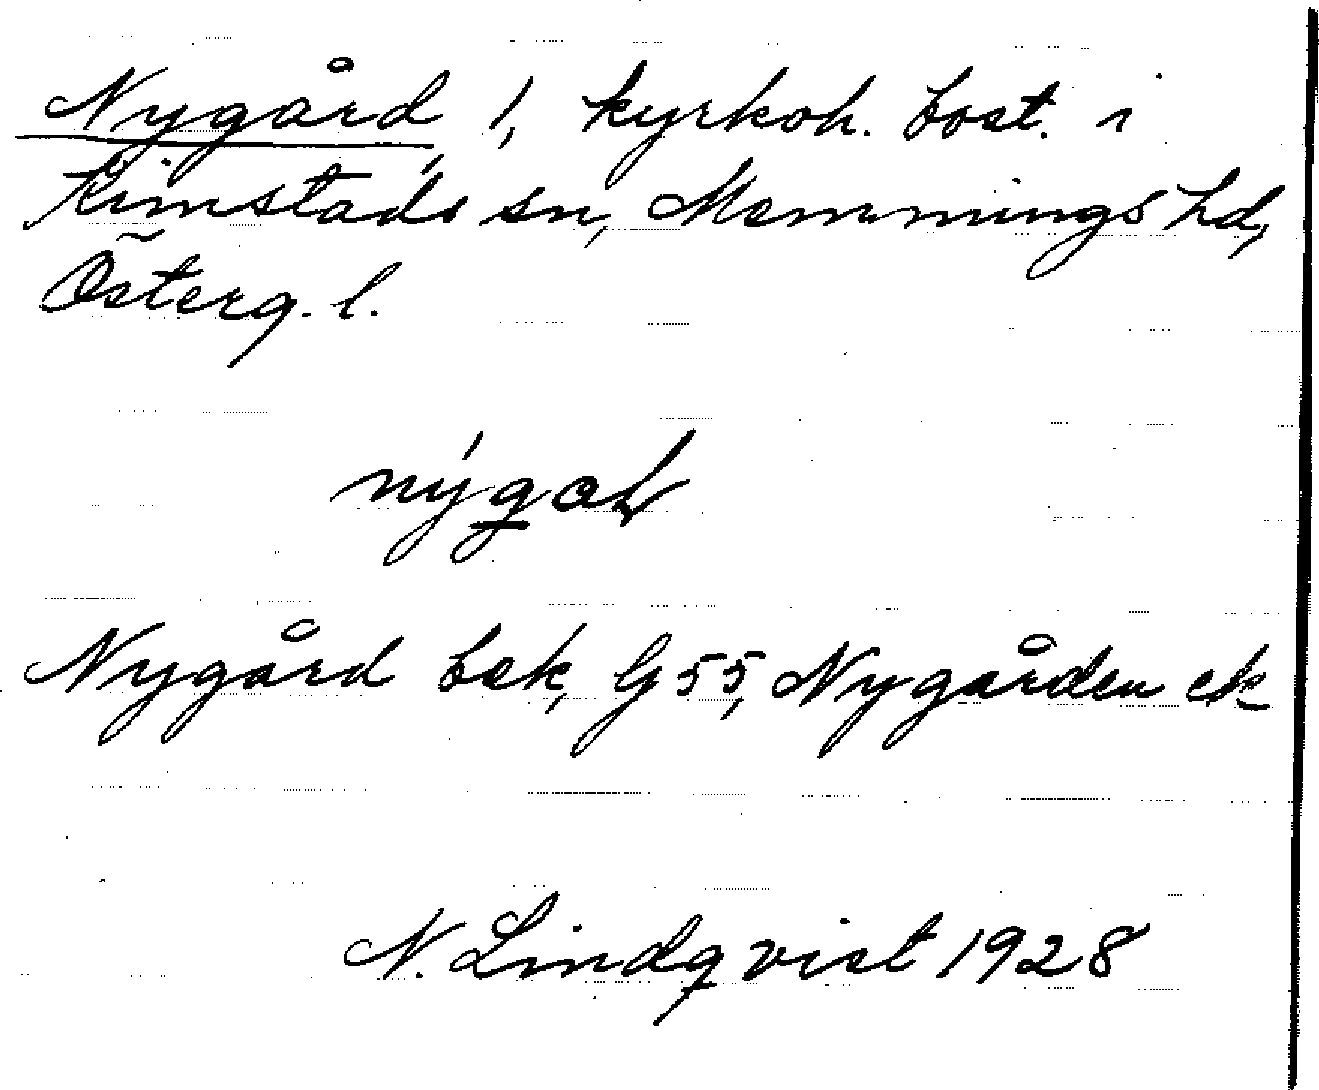 Nygård 1, kyrkoh. bost. i
Kimstads sn, Memmings hd,
Österg. l.
Nygård bek, G 55, Nygården ek
N. Lindqvist 1928